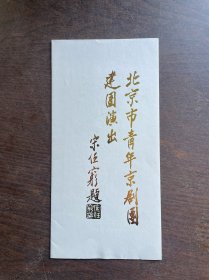 北京市青年京剧团
建团演出
宋任穷题